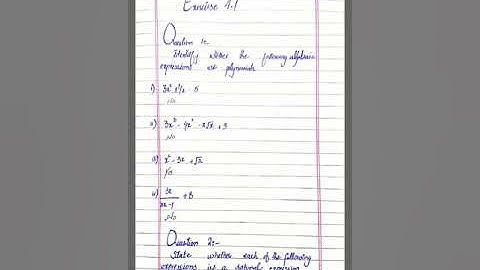 Exercise 4.1
Question 1:-
Identify wither the following algebraic
expressions are polynomials
i) 3x² + 1/x - 5
No
ii) 3x³ - 4x² - x√x + 3
No
iii) x² - 3x + √2
No
iv) 3x / 2x-1 + 8
No
Question 2:-
State whether each of the following
expressions is a rational expression